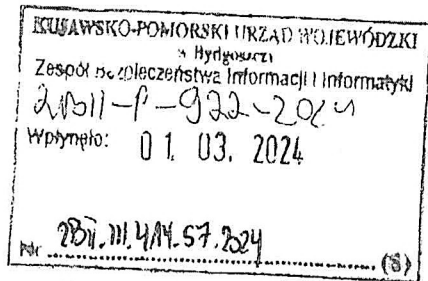 KUJAWSKO-POMORSKI URZĄD WOJEWÓDZKI
w Bydgoszczy
Zespół Bezpieczeństwa Informacji i Informatyki
ZBII-P-922-2024
Wpłynęło: 01. 03. 2024
ZBII.III.414.57.2024 (8)